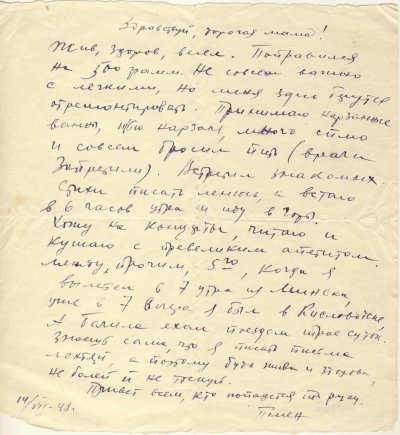 Здравствуй, дорогая мама!
Жив, здоров, весел. Поправился
на 500 грамм. Не совсем важно
с легкими, но меня здесь берутся
отремонтировать. Принимаю нарзанные
ванны, пью нарзан, много сплю
и совсем бросил пить (врачи
запретили). Встретил знакомых.
Стихи писать ленюсь, а встаю
в 6 часов утра и иду в горы.
Хожу на концерты, читаю и
кушаю с превеликим аппетитом.
Между прочим, 5го, когда я
вылетел в 7 утра из Минска,
уже в 7 вечера я был в Кисловодске.
А ехал поездом трое суток.
Знаешь сама что я писать письма
лентяй а поэтому будь жива и здорова,
не болей и не тоскуй.
Привет всем, кто попадется под руку.
Пимен
14/VII-48 г.